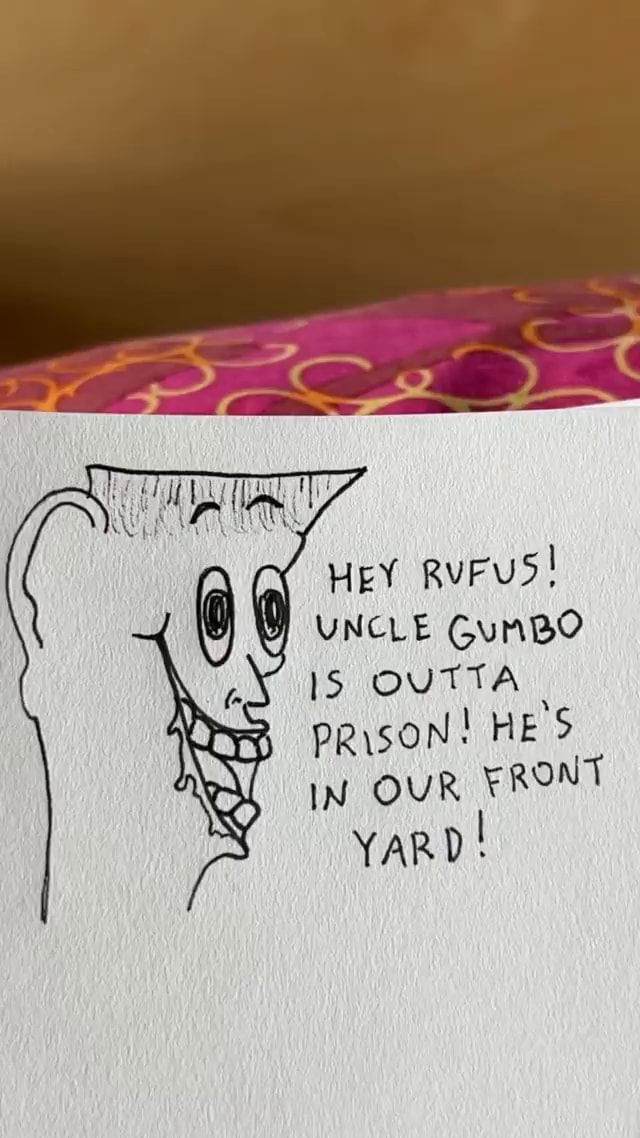 HEY RUFUS!
UNCLE GUMBO
IS OUTTA
PRISON! HE'S
IN OUR FRONT
YARD!